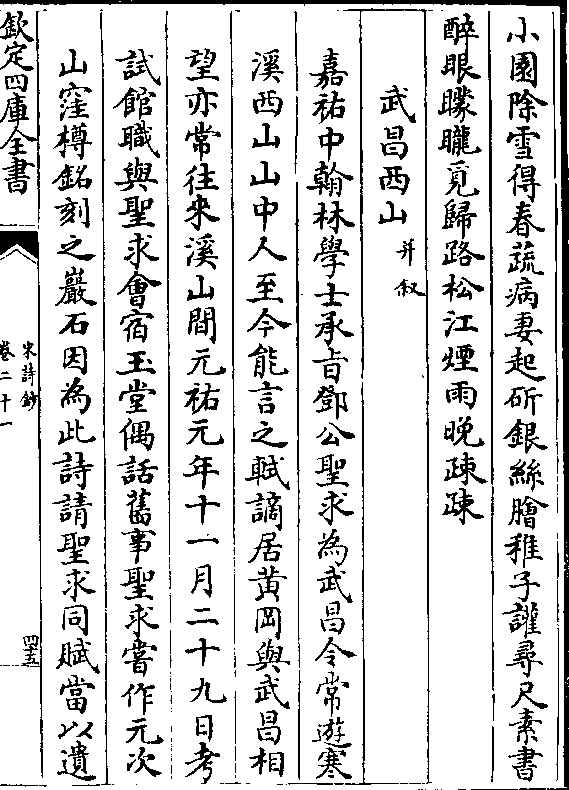 小園除雪得春蔬病妻起斫銀絲膾稚子讙尋尺素書
醉眼矇矓覓歸路松江煙雨晚疎疎
武昌西山并叙
嘉祐中翰林學士承旨鄧公聖求為武昌令常遊寒
溪西山山中人至今能言之軾謫居黄岡與武昌相
望亦常往来溪山間元祐元年十一月二十九日考
試館職與聖求會宿玉堂偶話舊事聖求嘗作元次
山窪樽銘刻之巖石因為此詩請聖求同賦當以遺
欽定四庫全書
宋詩鈔
卷二十一
四十五